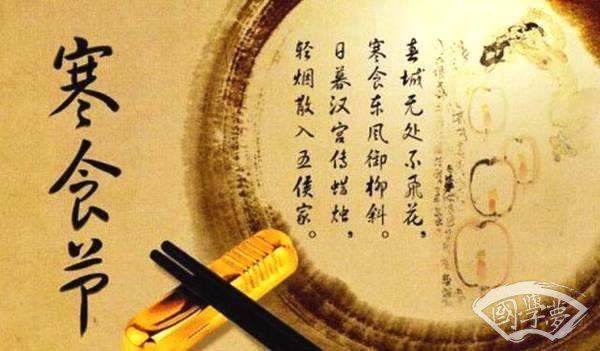 寒食节
春城无处不飛花，
寒食东风御柳斜。
日暮汉宫传蜡烛，
轻烟散入五侯家。
國學夢